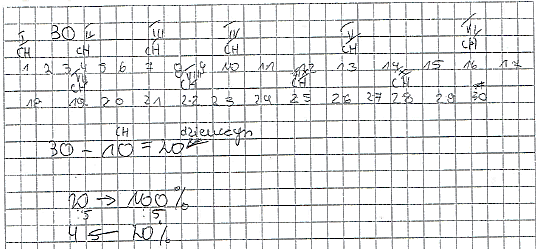 I 30 II III IV V VI
CH CH CH CH CH CH
1 2 3 4 5 6 7 8 9 10 11 12 13 14 15 16 17
CH CH CH CH
18 19 20 21 22 23 24 25 26 27 28 29 30
CH dziewczyn
30 - 10 = 20
20 → 100%
:5 :5
4 20%